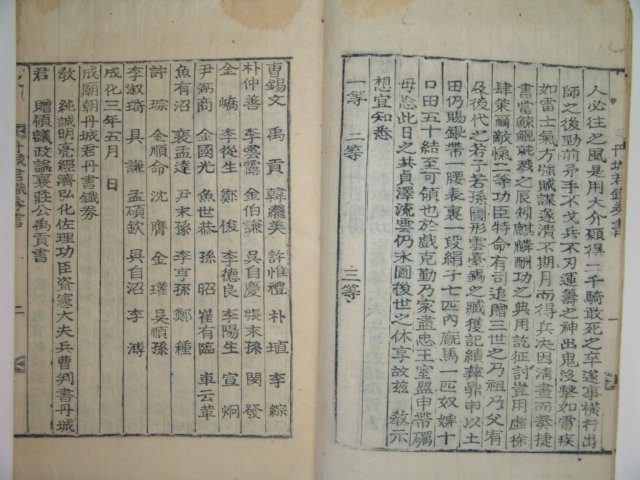 人必往之風是用大介碩得二千騎敢死之卒遂事橫行出
師之後勁前茅手不戈兵不刃運籌之神出鬼沒擊如雷疾
如雷士氣方強賊謀遂潰不期月而得兵決因清晝而泰捷
書當鯨鯢就戮之辰刺麒麟酬功之典用訖征討豈用虛徐
肆策爾敵愾一等功臣特命有司追贈三世乃祖乃父宥
及後代之子若孫圖形雲臺錫之臧獲記績彝鼎申以土
田仍賜銀帶一腰表裏一段絹子七匹內廐馬一匹奴婢十
口田五十結至可領也於戲克勤乃家盡忠王室盟申帶礪
毋忘此日之共貞澤流雲仍永圖後世之休享故玆 敎示
想宜知悉
一等 二等 三等
曹錫文 禹貢 韓繼美 許惟禮 朴埴 李綜
朴仲善 李雲露 金伯謙 吳自慶 張末孫 閔發
金嶠 李從生 鄭俊 李德良 李陽生 宣炯
尹弼商 金國光 魚世恭 孫昭 崔有臨 車云革
魚有沼 裵孟達 尹末孫 李亨孫 鄭種
許琮 金順命 沈膺 金瓘 吳順孫
李淑琦 具謙 孟碩欽 吳自沼 李溥
成化三年五月 日
成廟朝丹城君丹書鐵券
敎 純誠明亮經濟弘化佐理功臣資憲大夫兵曹判書丹城
君 贈領議政謚襄莊公禹貢書